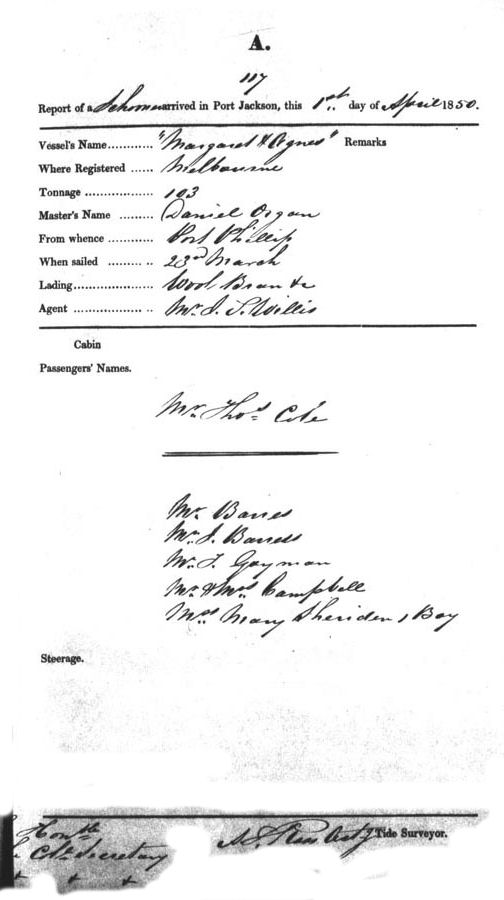 A.
117
Report of a Schooner arrived in Port Jackson, this 1st day of April 1850.
Vessel's Name............ "Margaret & Agnes" Remarks
Where Registered ...... Melbourne
Tonnage .................. 103
Master's Name ......... Daniel Organ
From whence ............ Port Phillip
When sailed ......... .. 23rd March
Lading..................... Wool Bran &c
Agent .................. .. Mr. J. S. Willis
Cabin
Passengers' Names.
Mr. Thos Cole
Mr. Barres
Mr. J. Barress
Mr. T. Gayman
Mr. & Mrs Campbell
Mrs Mary Sheriden 1 Boy
Steerage.
Honble
Secretary
Tide Surveyor.